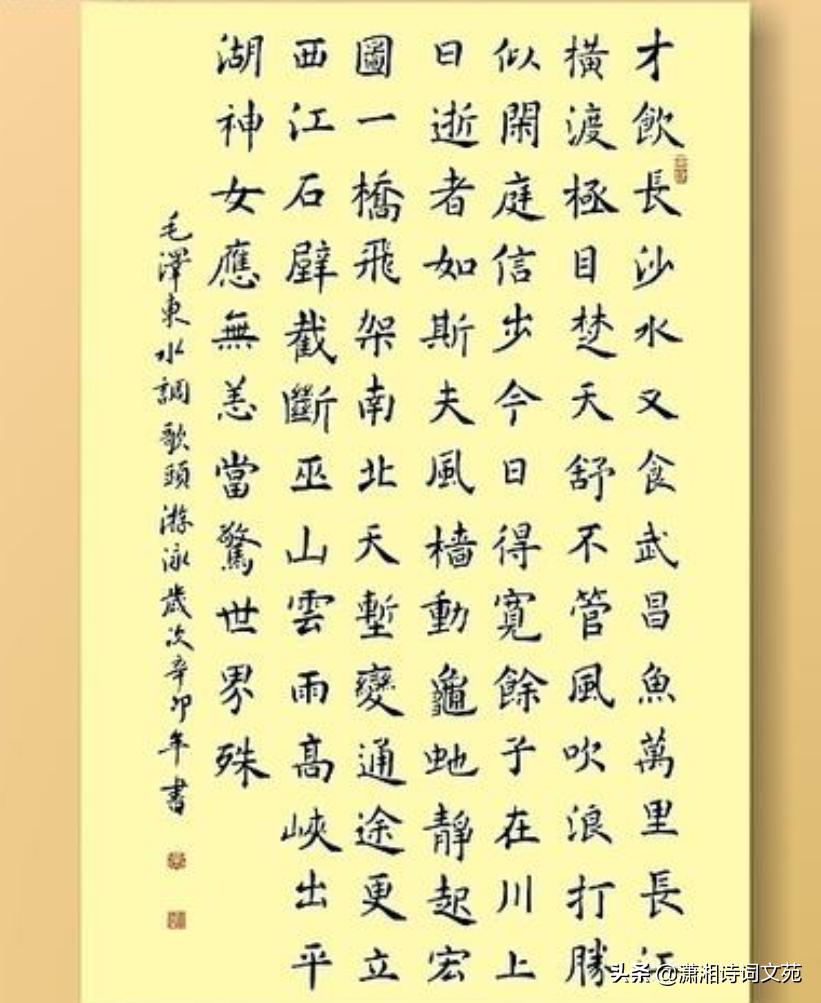 才飲長沙水又食武昌魚萬里長江
橫渡極目楚天舒不管風吹浪打勝
似閑庭信步今日得寬餘子在川上
曰逝者如斯夫風檣動龜虵靜起宏
圖一橋飛架南北天塹變通途更立
西江石壁截斷巫山雲雨高峽出平
湖神女應無恙當驚世界殊
毛澤東水調歌頭游泳歲次辛卯年書
头条 @潇湘诗词文苑